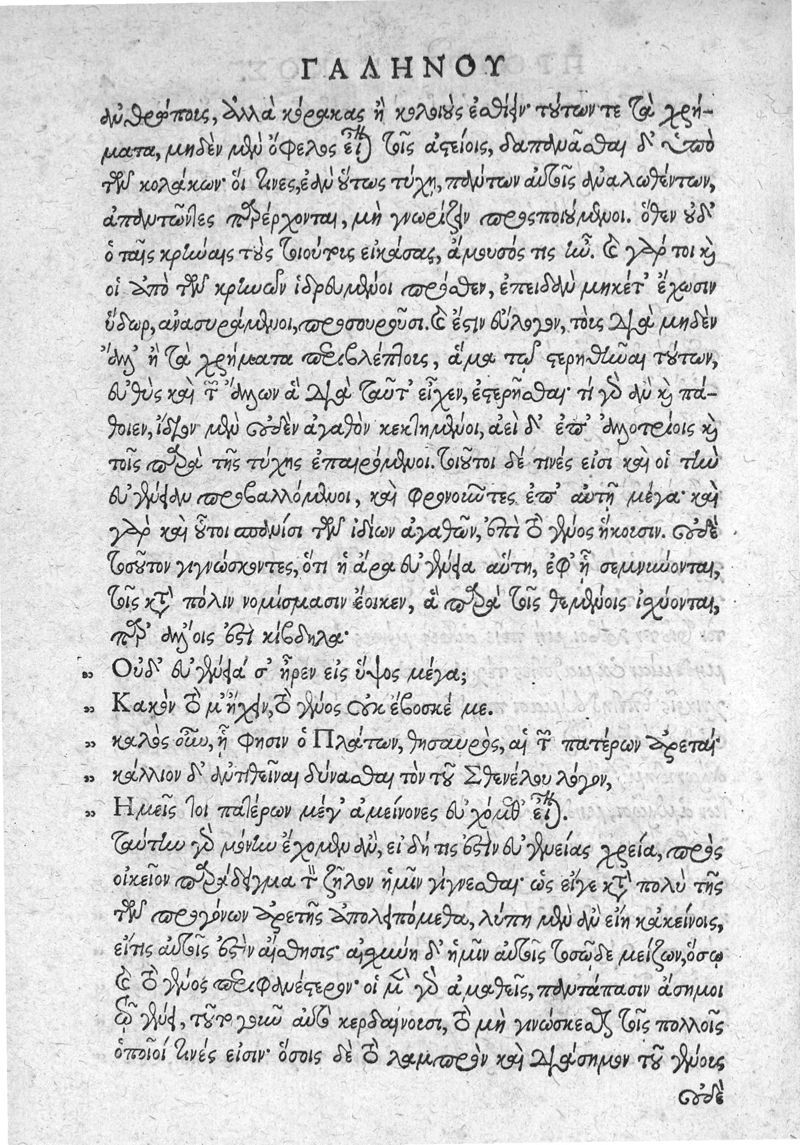 ΓΑΛΗΝΟΥ
ἀνθρώποις, ἀλλὰ κόρακας ἢ κολοιοὺς ἐσθίειν· τούτων τε τὰ χρή-
ματα, μηδὲν μὲν ὄφελος εἶναι τοῖς ἀστείοις, δαπανᾶσθαι δ' ὑπὸ
τῶν κολάκων· οἵ τινες, ἐὰν οὕτως τύχῃ, πάντων αὐτοῖς ἀναλωθέντων,
ἀπαντῶντες παρέρχονται, μὴ γνωρίζειν προσποιούμενοι. ὅθεν οὐδ'
ὁ ταῖς κρήναις τοὺς τοιούτους εἰκάσας, ἄμουσός τις ἦν. καὶ γάρ τοι καὶ
οἱ ἀπὸ τῶν κρηνῶν ὑδρευόμενοι πρόσθεν, ἐπειδὰν μηκέτ' ἔχωσιν
ὕδωρ, ἀνασυράμενοι, προσουροῦσι. καὶ ἔστιν εὔλογον, τοῖς διὰ μηδὲν
ἄλλ' ἢ τὰ χρήματα περιβλέπτοις, ἅμα τῷ στερηθῆναι τούτων,
εὐθὺς καὶ τῶν ἄλλων ἃ διὰ ταῦτ' εἶχεν, ἐστερῆσθαι· τί γὰρ ἂν καὶ πά-
θοιεν, ἴδιον μὲν οὐδὲν ἀγαθὸν κεκτημένοι, ἀεὶ δ' ἐπ' ἀλλοτρίοις καὶ
τοῖς παρὰ τῆς τύχης ἐπαιρόμενοι. τοιοῦτοι δέ τινές εἰσι καὶ οἱ τὴν
εὐγένειαν προβαλλόμενοι, καὶ φρονοῦντες ἐπ' αὐτῇ μέγα· καὶ
γὰρ καὶ οὗτοι ἀπανίσι τῶν ἰδίων ἀγαθῶν, ἐπὶ τὸ γένος ἥκουσιν. οὐδὲ
τοσοῦτον γιγνώσκοντες, ὅτι ἡ ἄρα εὐγένεια αὕτη, ἐφ' ᾗ σεμνύνονται,
τοῖς κατὰ πόλιν νομίσμασιν ἔοικεν, ἃ παρὰ τοῖς θεμένοις ἰσχύονται,
παρ' ἄλλοις ἐστὶ κίβδηλα·
„ Οὐδ' εὐγένειά σ' ἦρεν εἰς ὕψος μέγα;
„ Κακὸν τὸ μ' ἤχειν, τὸ γένος οὐκ ἔβοσκέ με.
„ καλὸς οὖν, ᾗ φησιν ὁ Πλάτων, θησαυρὸς, αἱ τῶν πατέρων ἀρεταί·
„ κάλλιον δ' ἀντιθεῖναι δύνασθαι τὸν τοῦ Σθενέλου λόγον,
„ Ἡμεῖς τοι πατέρων μέγ' ἀμείνονες εὐχόμεθ' εἶναι.
ταύτην γὰρ μόνην ἔχομεν ἂν, εἰ δή τις ἐστὶν εὐγενείας χρεία, πρὸς
οἰκεῖον παράδειγμα τὸν ζῆλον ἡμῖν γίγνεσθαι· ὡς εἴγε κατὰ πολὺ τῆς
τῶν προγόνων ἀρετῆς ἀπολειπόμεθα, λύπη μὲν ἂν εἴη κἀκείνοις,
εἴ τις αὐτοῖς ἐστὶν αἴσθησις· αἰσχύνη δ' ἡμῖν αὐτοῖς τοσῷδε μείζων, ὅσῳ
καὶ τὸ γένος περιφανέστερον· οἱ μὲν γὰρ ἀμαθεῖς, παντάπασιν ἄσημοι
τῷ γένει, τοῦτο γοῦν αὐτὸ κερδαίνουσι, τὸ μὴ γινώσκεσθαι τοῖς πολλοῖς
ὁποῖοί τινές εἰσιν· ὅσοις δὲ τὸ λαμπρὸν καὶ διάσημον τοῦ γένους
οὐδὲ